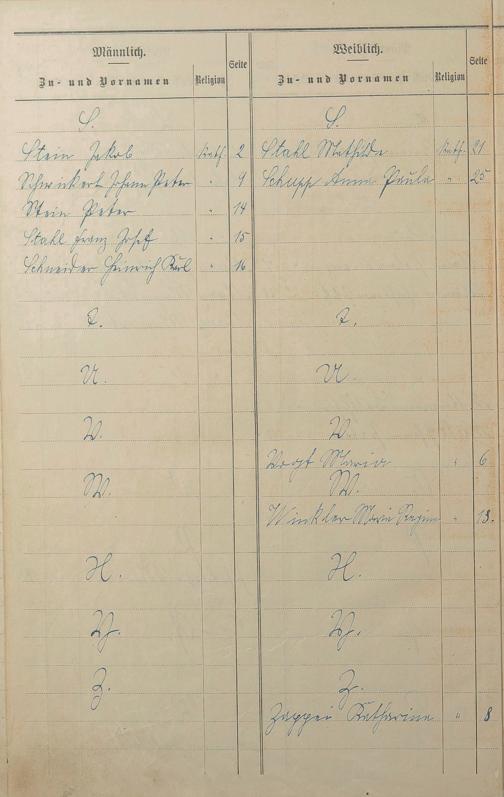 Männlich.
Zu- und Vornamen
Religion
Seite
S.
Stein Jakob Kath. 2
Schwickert Johann Peter " 9
Stein Peter " 14
Stahl Franz Josef " 15
Schneider Heinrich Karl " 16
T.
U.
V.
W.
X.
Y.
Z.
Weiblich.
Zu- und Vornamen
Religion
Seite
S.
Stahl Mathilde Kath. 21
Schupp Anna Paula " 25
T.
U.
V.
Vogt Maria " 6
W.
Winkler Marie Regina " 13.
X.
Y.
Z.
Zappei Katharina " 8